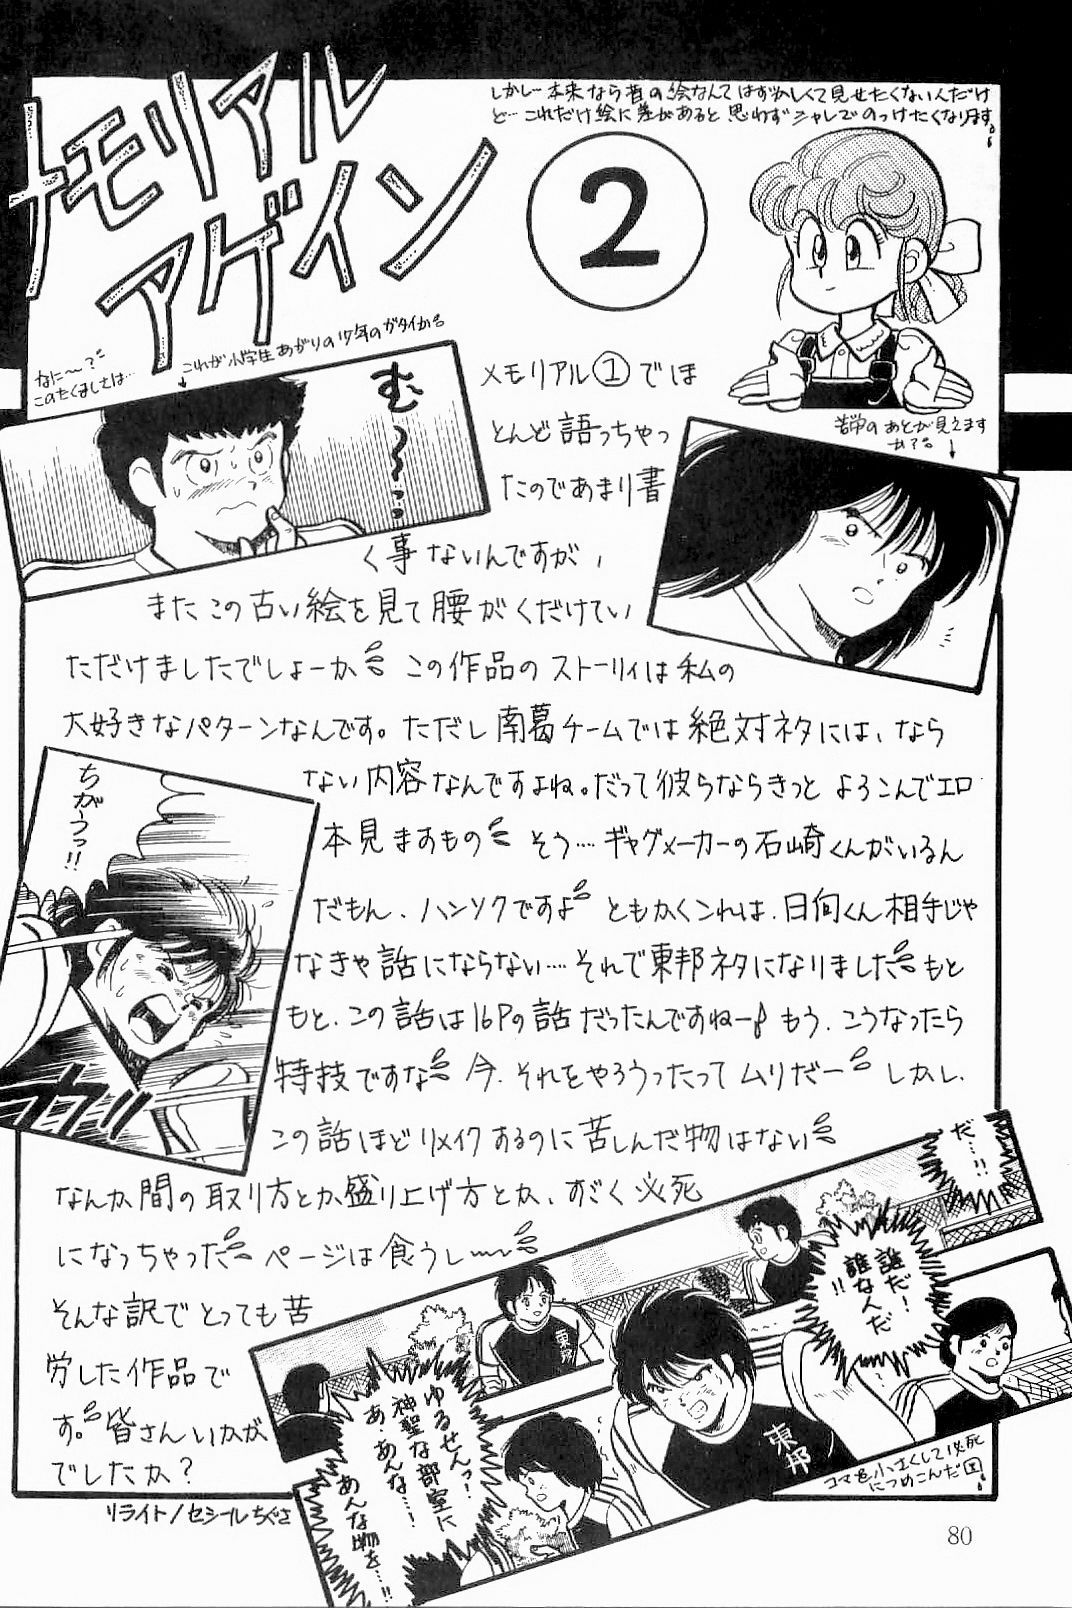 メモリアル
アゲイン
2
しかし…本来なら昔の絵なんてはずかしくて見せたくないんだけ
ど…これだけ絵に差があると思わずシャレでのっけたくなります。
なに〜?
このたくましさは…
これが小学生あがりの17年のガタイか。
む〜…
苦労のあとが見えます
か?。
メモリアル①でほ
とんど語っちゃっ
たのであまり書
く事ないんですが、
またこの古い絵を見て腰がくだけてい
ただけましたでしょーか この作品のストーリィは私の
大好きなパターンなんです。ただし南葛チームでは絶対ネタには、なら
ない内容なんですよね。だって彼らならきっとよろこんでエロ
本見ますもの そう…ギャグメーカーの石崎くんがいるん
だもん、ハンソクですよ ともかくこれは、日向くん相手じゃ
なきゃ話にならない…それで東邦ネタになりました もと
もと、この話は16Pの話だったんですねー もう、こうなったら
特技ですな 今、それをやろうったってムリだー しかし、
この話ほどリメイクするのに苦しんだ物はない
なんか間の取り方とか盛り上げ方とか、すごく必死
になっちゃった ページは食うし〜
そんな訳でとっても苦
労した作品で
す。皆さんいかが
でしたか?
リライト/セシールちぐさ
ちがうっ!!
だ…!!
誰だ!
誰なんだ
!!
東邦
ゆるせんっ…!
神聖な部室に
あ・あんな…!
あんな物を…!!
東邦
コマを小さくして必死
につめこんだ図
80